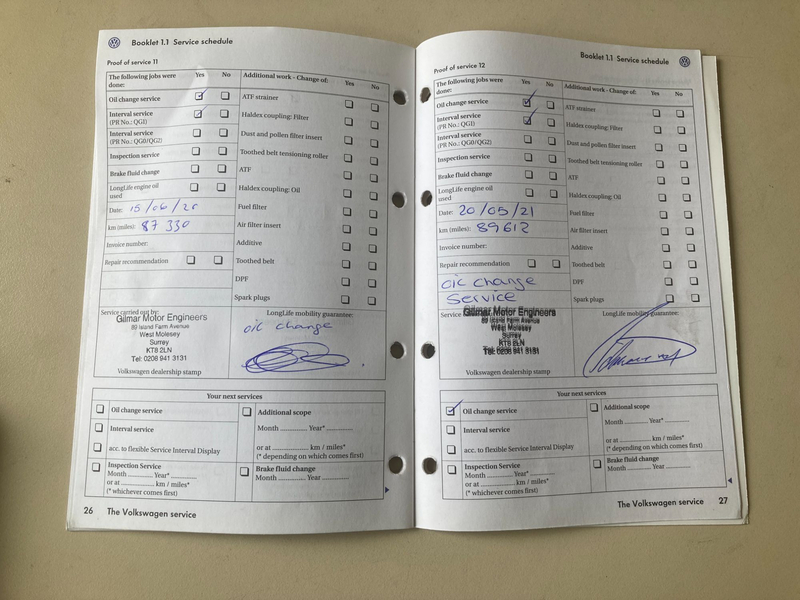 Booklet 1.1 Service schedule
Proof of service 11
The following jobs were done: Yes No
Additional work - Change of: Yes No
Oil change service
ATF strainer
Interval service
(PR No.: QG1)
Haldex coupling: Filter
Interval service
(PR No.: QG0/QG2)
Dust and pollen filter insert
Inspection service
Toothed belt tensioning roller
Brake fluid change
ATF
LongLife engine oil used
Haldex coupling: Oil
Date: 15/06/20
Fuel filter
km (miles): 87 330
Air filter insert
Invoice number:
Additive
Repair recommendation
Toothed belt
DPF
Spark plugs
Service carried out by:
LongLife mobility guarantee:
Gilmar Motor Engineers
89 Island Farm Avenue
West Molesey
Surrey
KT8 2LN
Tel: 0208 941 3131
oil change
Volkswagen dealership stamp
Your next services
Oil change service
Additional scope
Interval service
Month Year*
acc. to flexible Service Interval Display
or at km / miles*
(* depending on which comes first)
Inspection Service
Month Year*
or at km / miles*
(* whichever comes first)
Brake fluid change
Month Year
26 The Volkswagen service
Booklet 1.1 Service schedule
Proof of service 12
The following jobs were done: Yes No
Additional work - Change of: Yes No
Oil change service
ATF strainer
Interval service
(PR No.: QG1)
Haldex coupling: Filter
Interval service
(PR No.: QG0/QG2)
Dust and pollen filter insert
Inspection service
Toothed belt tensioning roller
Brake fluid change
ATF
LongLife engine oil
used
Haldex coupling: Oil
Date: 20/05/21
Fuel filter
km (miles): 89612
Air filter insert
Invoice number:
Additive
Repair recommendation
Toothed belt
oil change
DPF
Service
Spark plugs
Service
LongLife mobility guarantee:
Gilmar Motor Engineers
89 Island Farm Avenue
West Molesey
Surrey
KT8 2LN
Tel: 0208 941 3131
Volkswagen dealership stamp
Your next services
Oil change service
Additional scope
Interval service
Month Year*
acc. to flexible Service Interval Display
or at km / miles*
(* depending on which comes first)
Inspection Service
Month Year*
or at km / miles*
(* whichever comes first)
Brake fluid change
Month Year
The Volkswagen service 27